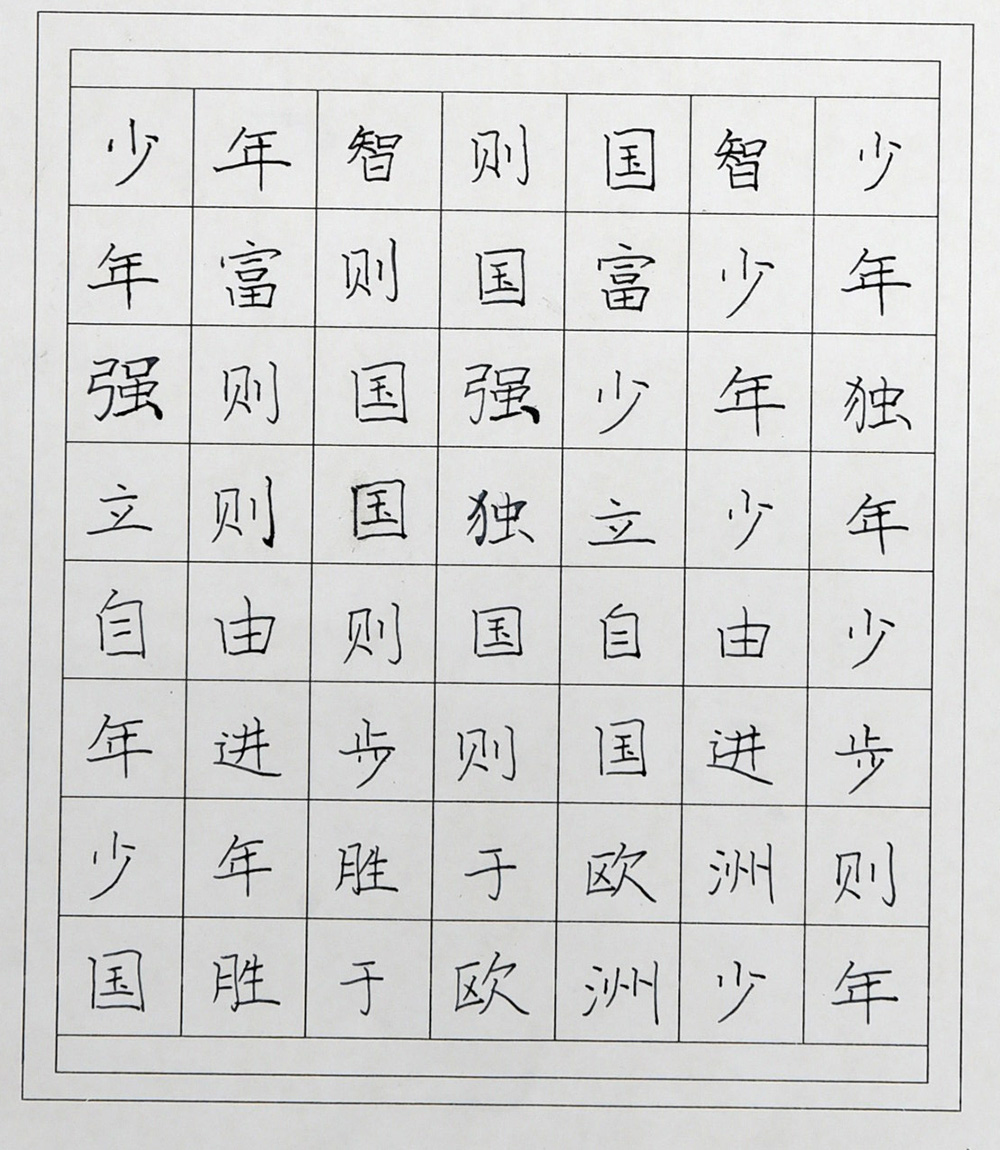 少年智则国智少
年富则国富少年
强则国强少年独
立则国独立少年
自由则国自由少
年进步则国进步
少年胜于欧洲则
国胜于欧洲少年